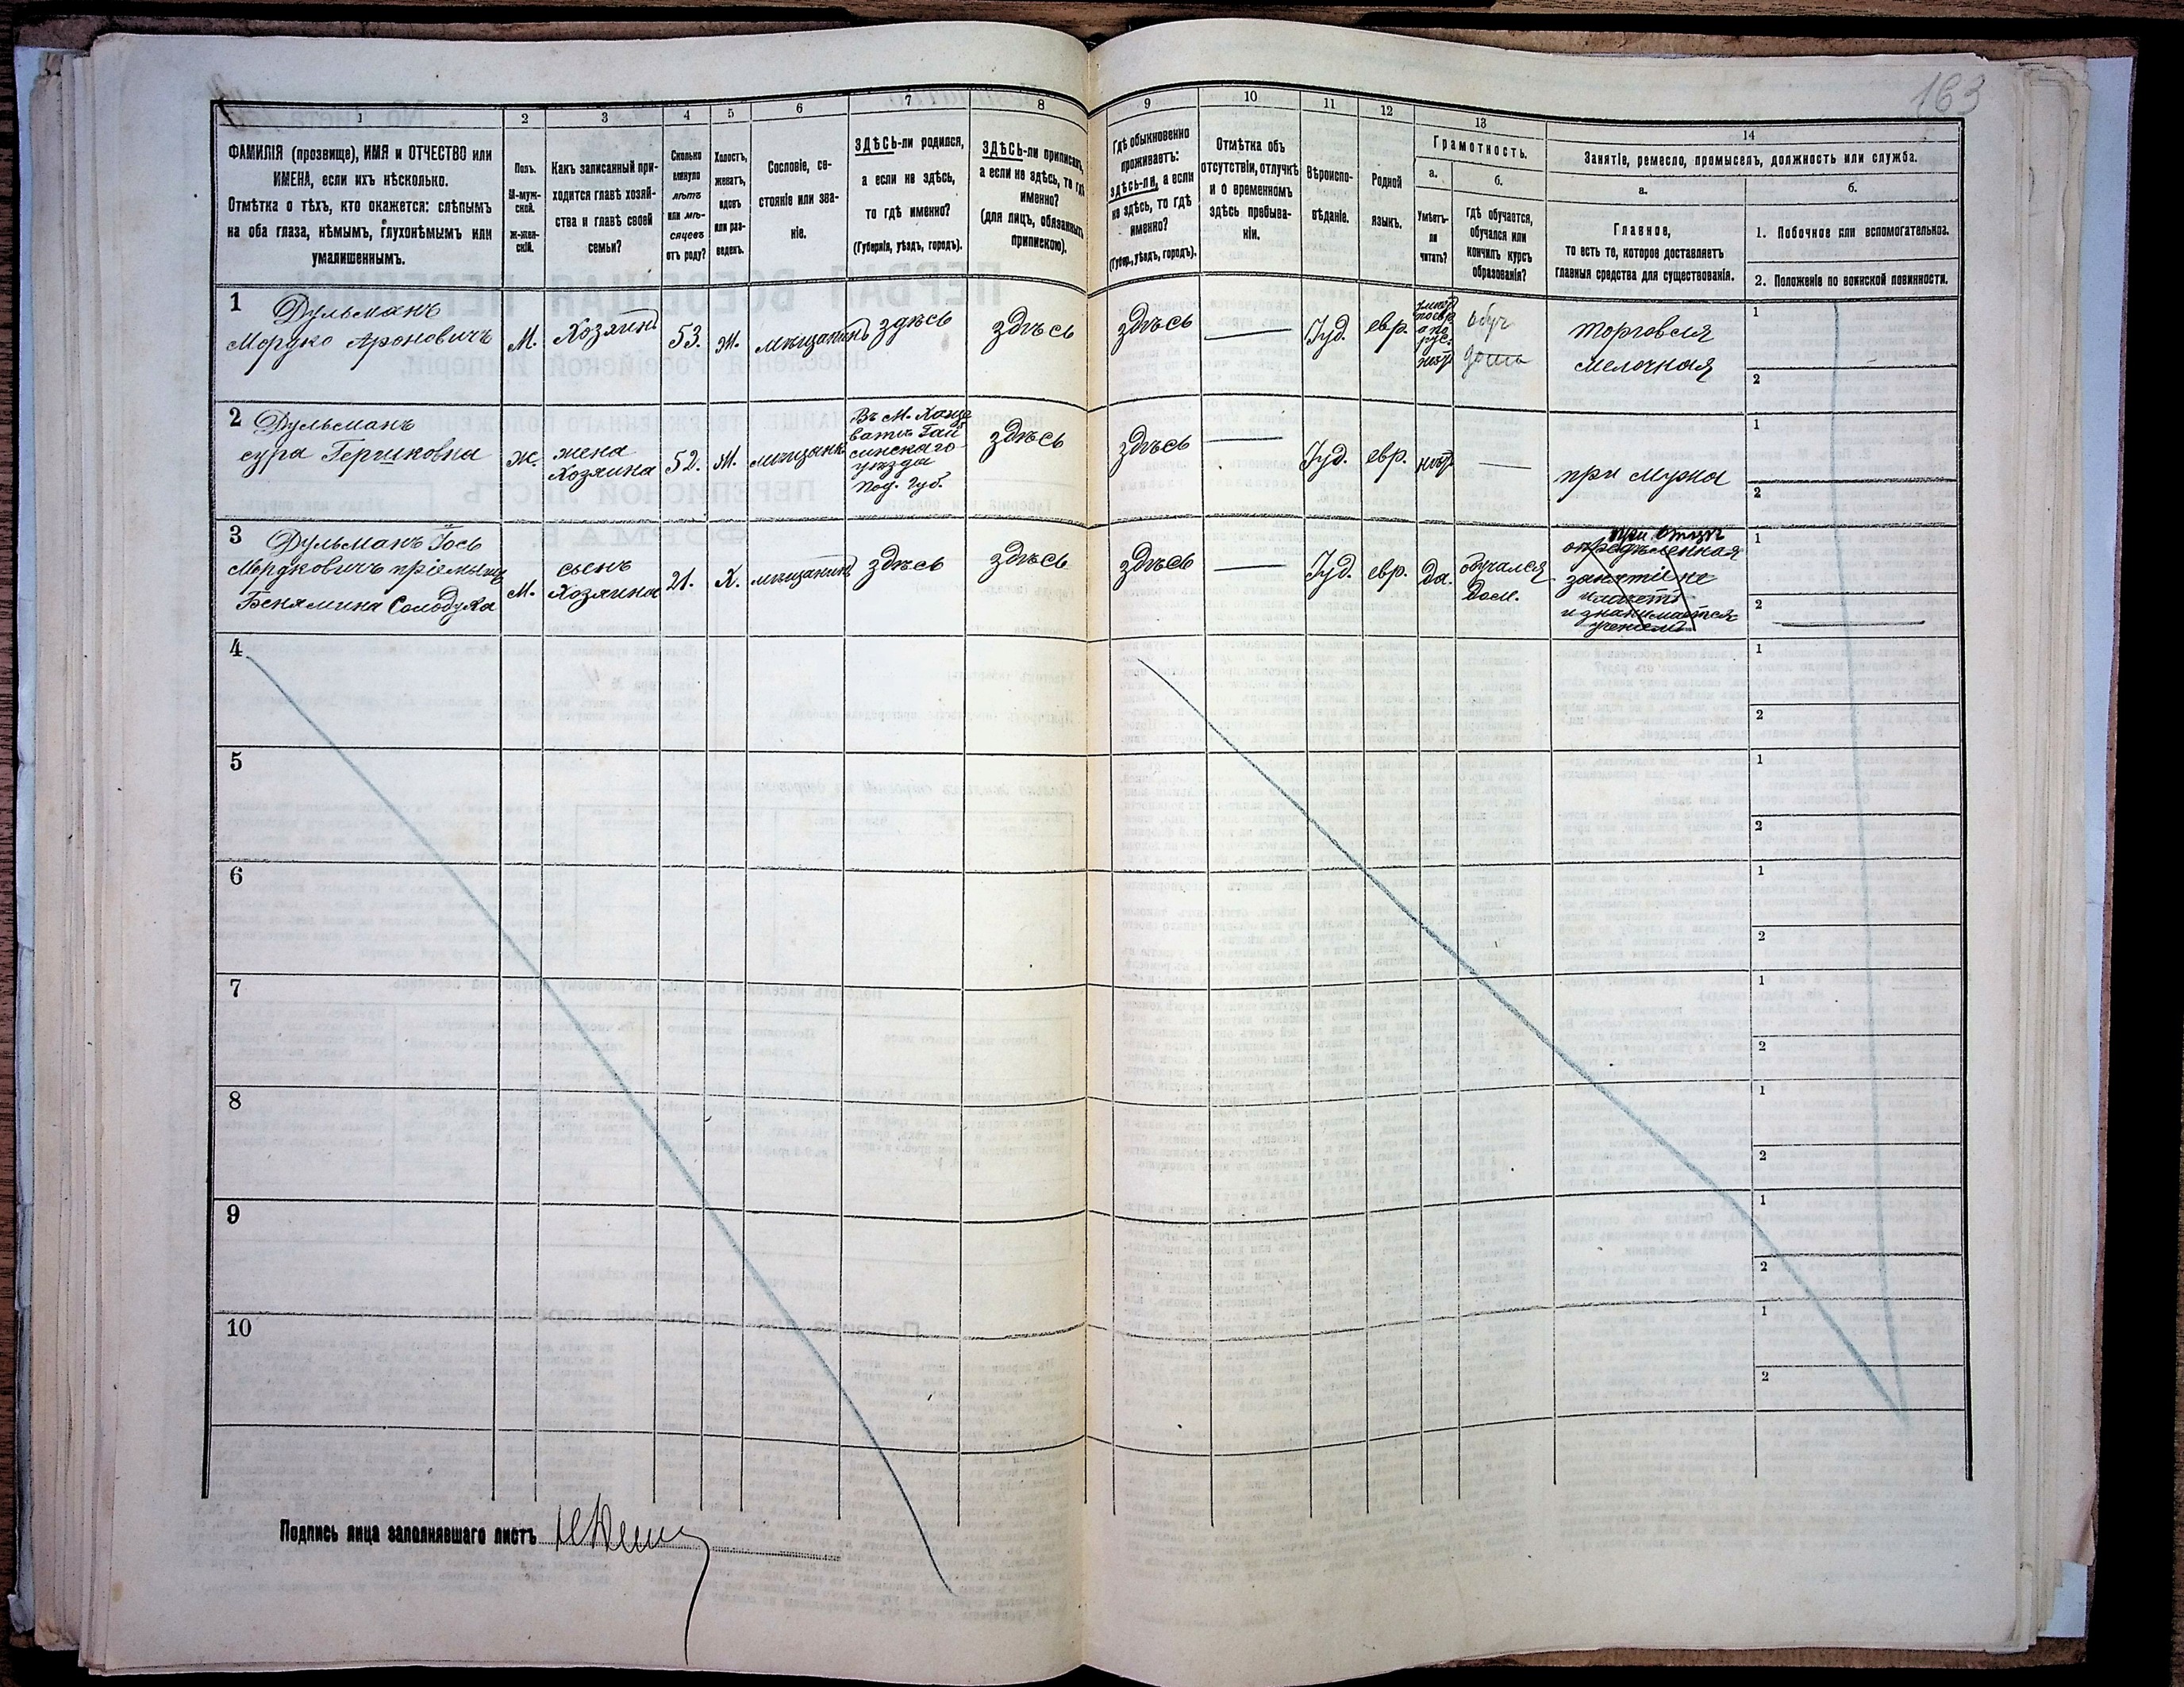 163
1
2
3
4
5
6
7
8
9
10
11
12
13
14
ФАМИЛІЯ (прозвище), ИМЯ и ОТЧЕСТВО или
ИМЕНА, если ихъ нѣсколько.
Отмѣтка о тѣхъ, кто окажется: слѣпымъ
на оба глаза, нѣмымъ, глухонѣмымъ или
умалишеннымъ.
Полъ.
М-муж-
ской.
ж-жен-
скій.
Какъ записанный при-
ходится главѣ хозяй-
ства и главѣ своей
семьи?
Сколько
минуло
лѣтъ
или мѣ-
сяцевъ
отъ роду?
Холостъ,
женатъ,
вдовъ
или раз-
веденъ.
Сословіе, со-
стояніе или зва-
ніе.
ЗДѢСЬ-ли родился,
а если не здѣсь,
то гдѣ именно?
(Губернія, уѣздъ, городъ).
ЗДѢСЬ-ли приписанъ,
а если не здѣсь, то гдѣ
именно?
(для лицъ, обязанныхъ
припискою).
Гдѣ обыкновенно
проживаетъ:
здѣсь-ли, а если
не здѣсь, то гдѣ
именно?
(Губер., уѣздъ, городъ).
Отмѣтка объ
отсутствіи, отлучкѣ
и о временномъ
здѣсь пребыва-
ніи.
Вѣроиспо-
вѣданіе.
Родной
языкъ.
Грамотность.
а.
Умѣетъ-
ли
читать?
б.
гдѣ обучается,
обучался или
кончилъ курсъ
образованія?
Занятіе, ремесло, промыселъ, должность или служба.
а.
Главное,
то есть то, которое доставляетъ
главныя средства для существованія.
б.
1. Побочное или вспомогательное.
2. Положеніе по воинской повинности.
1 Дульманъ
Мордко Ароновичъ
М.
Хозяинъ
53.
Ж.
мѣщанинъ
здѣсь
здѣсь
здѣсь
Іуд.
евр.
по евр
а по
рус.
нѣтъ
обуч
дома
торговля
мелочная
1
2
2 Дульманъ
сура Гершковна
Ж.
жена
Хозяина
52.
Въ М. Хаще
ватѣ Гай
синскаго
уѣзда
Под. Губ.
здѣсь
здѣсь
Іуд.
евр.
нѣтъ
при мужа
1
2
3 Дульманъ Іось
Мордковичъ пріемышъ
Бенямина Солодуха
М.
сынъ
Хозяина
21.
Х.
мѣщанинъ
здѣсь
здѣсь
здѣсь
Іуд.
евр.
Да.
обучался
Дом.
при отцѣ
опредѣленная
занятіе не
и знанимается
ученіемъ
1
2
4
1
2
5
1
2
6
1
2
7
1
2
8
1
2
9
1
2
10
1
2
Подпись лица заполнявшаго листъ